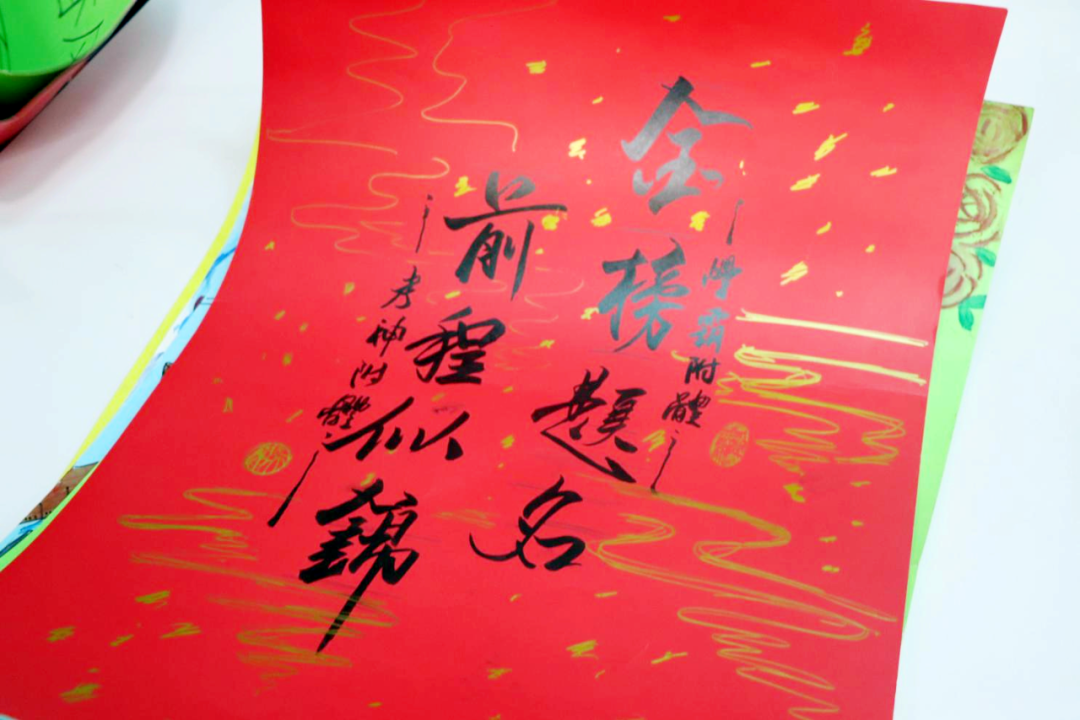 附體
金榜題名
前程似錦
考神附體